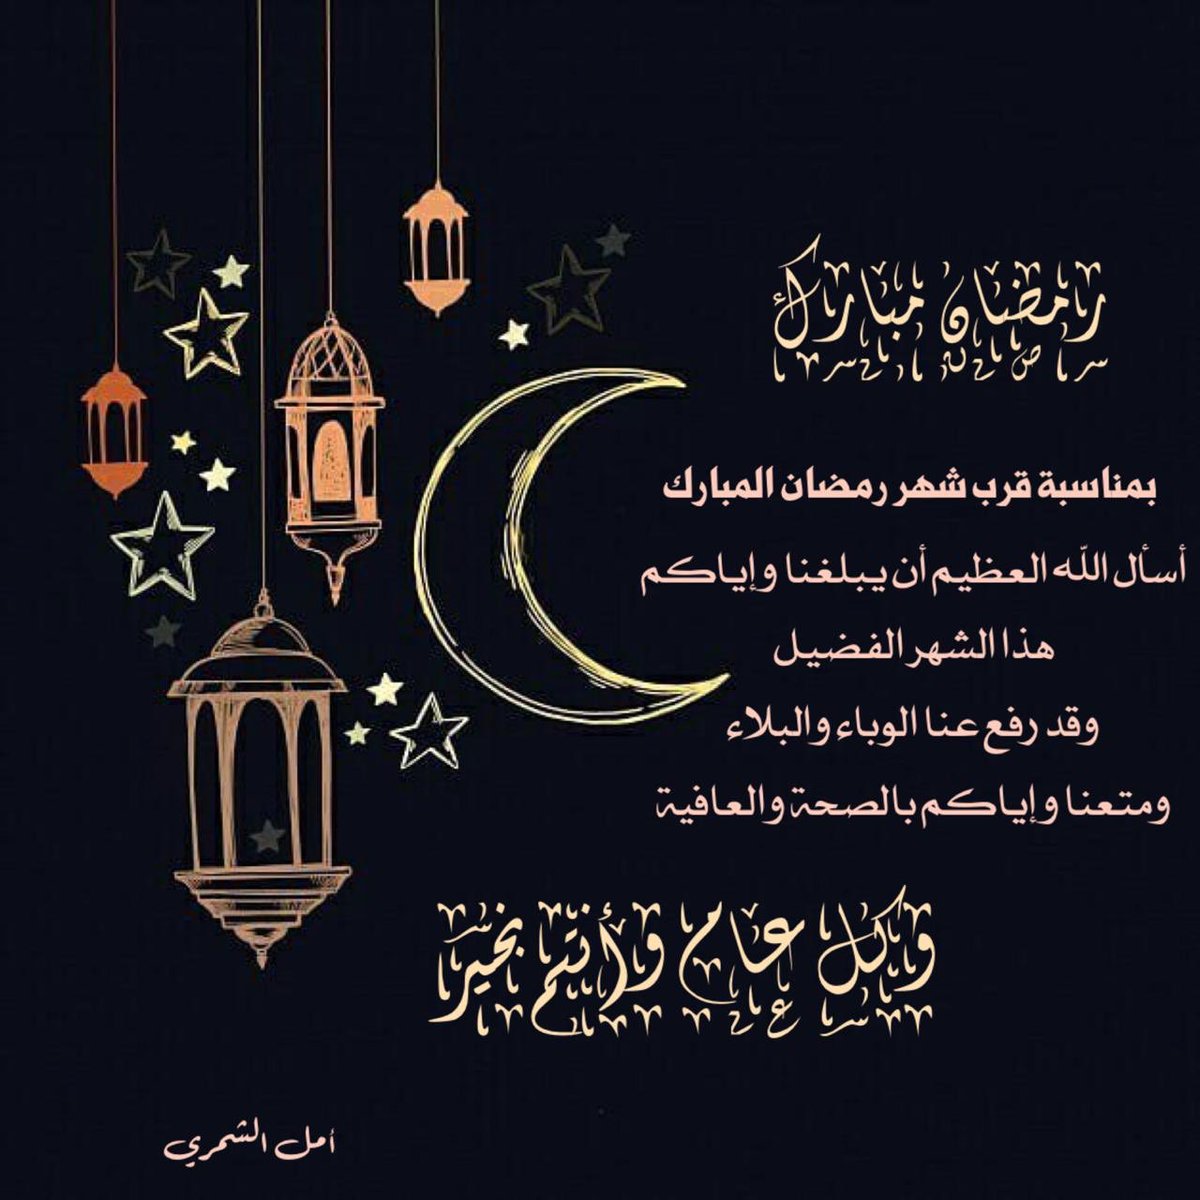 رمضان مبارك
بمناسبة قرب شهر رمضان المبارك
أسأل الله العظيم أن يبلغنا وإياكم
هذا الشهر الفضيل
وقد رفع عنا الوباء والبلاء
ومتعنا وإياكم بالصحة والعافية
وكل عام وأنتم بخير
أمل الشمري